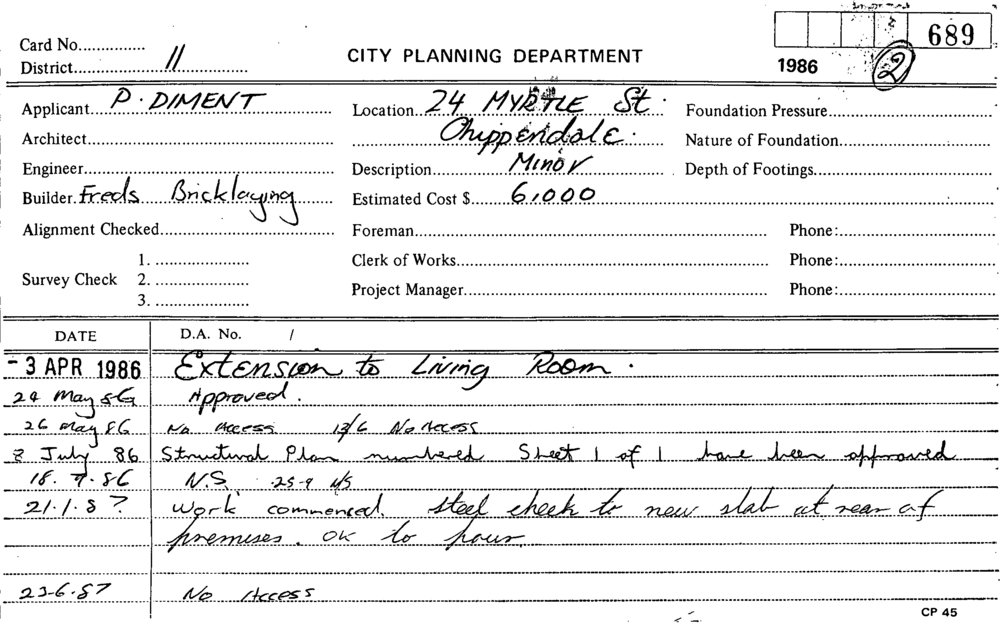 689
Card No...............
District............ 11 ....................
CITY PLANNING DEPARTMENT
1986
2
Applicant P. DIMENT
Location 24 MYRTLE St.
Foundation Pressure
Architect
Chippendale.
Nature of Foundation
Engineer
Description Minor
Depth of Footings
Builder Freds Bricklaying
Estimated Cost $ 6,000
Alignment Checked
Foreman
Phone:
1.
Clerk of Works
Phone:
Survey Check 2.
Project Manager
Phone:
3.
DATE D.A. No. /
-3 APR 1986 Extension to Living Room.
24 May 86 Approved.
26 May 86 No Access 13/6 No Access
8 July 86 Structural Plan numbered Sheet 1 of 1 have been approved
18.9.86 N.S. 25-9 N/S
21.1.87 Work commenced. Steel check to new slab at rear of
premises. OK to pour
23-6-87 No Access
CP 45